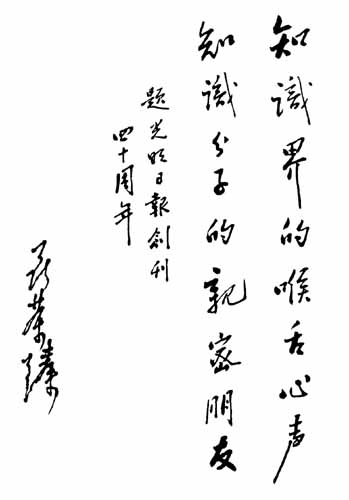 知識界的喉舌心声
知識分子的親密朋友
題光明日報創刊
四十周年
聂荣臻